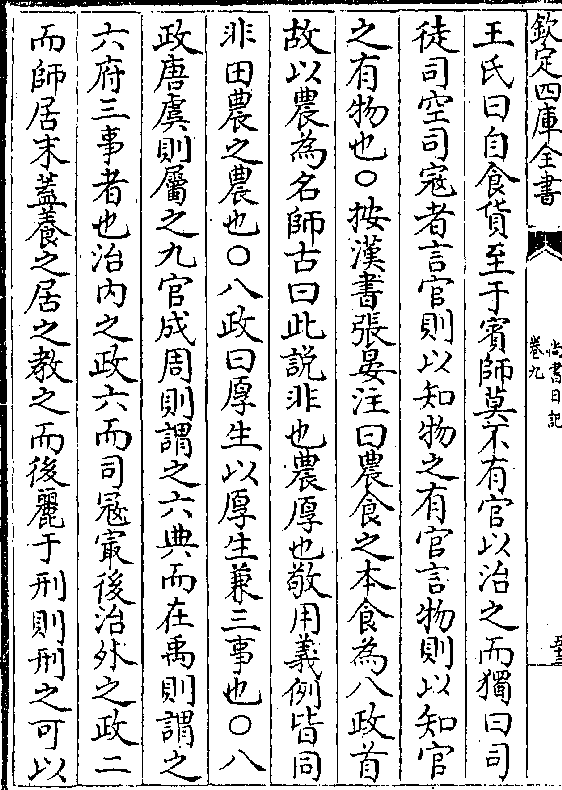 欽定四庫全書
尚書日記
卷九
王氏曰自食貨至于賓師莫不有官以治之而獨曰司
徒司空司寇者言官則以知物之有官言物則以知官
之有物也○按漢書張晏注曰農食之本食為八政首
故以農為名師古曰此説非也農厚也敬用義例皆同
非田農之農也○八政曰厚生以厚生兼三事也○八
政唐虞則屬之九官成周則謂之六典而在禹則謂之
六府三事者也治内之政六而司冦寂後治外之政二
而師居末蓋養之居之教之而後麗于刑則刑之可以